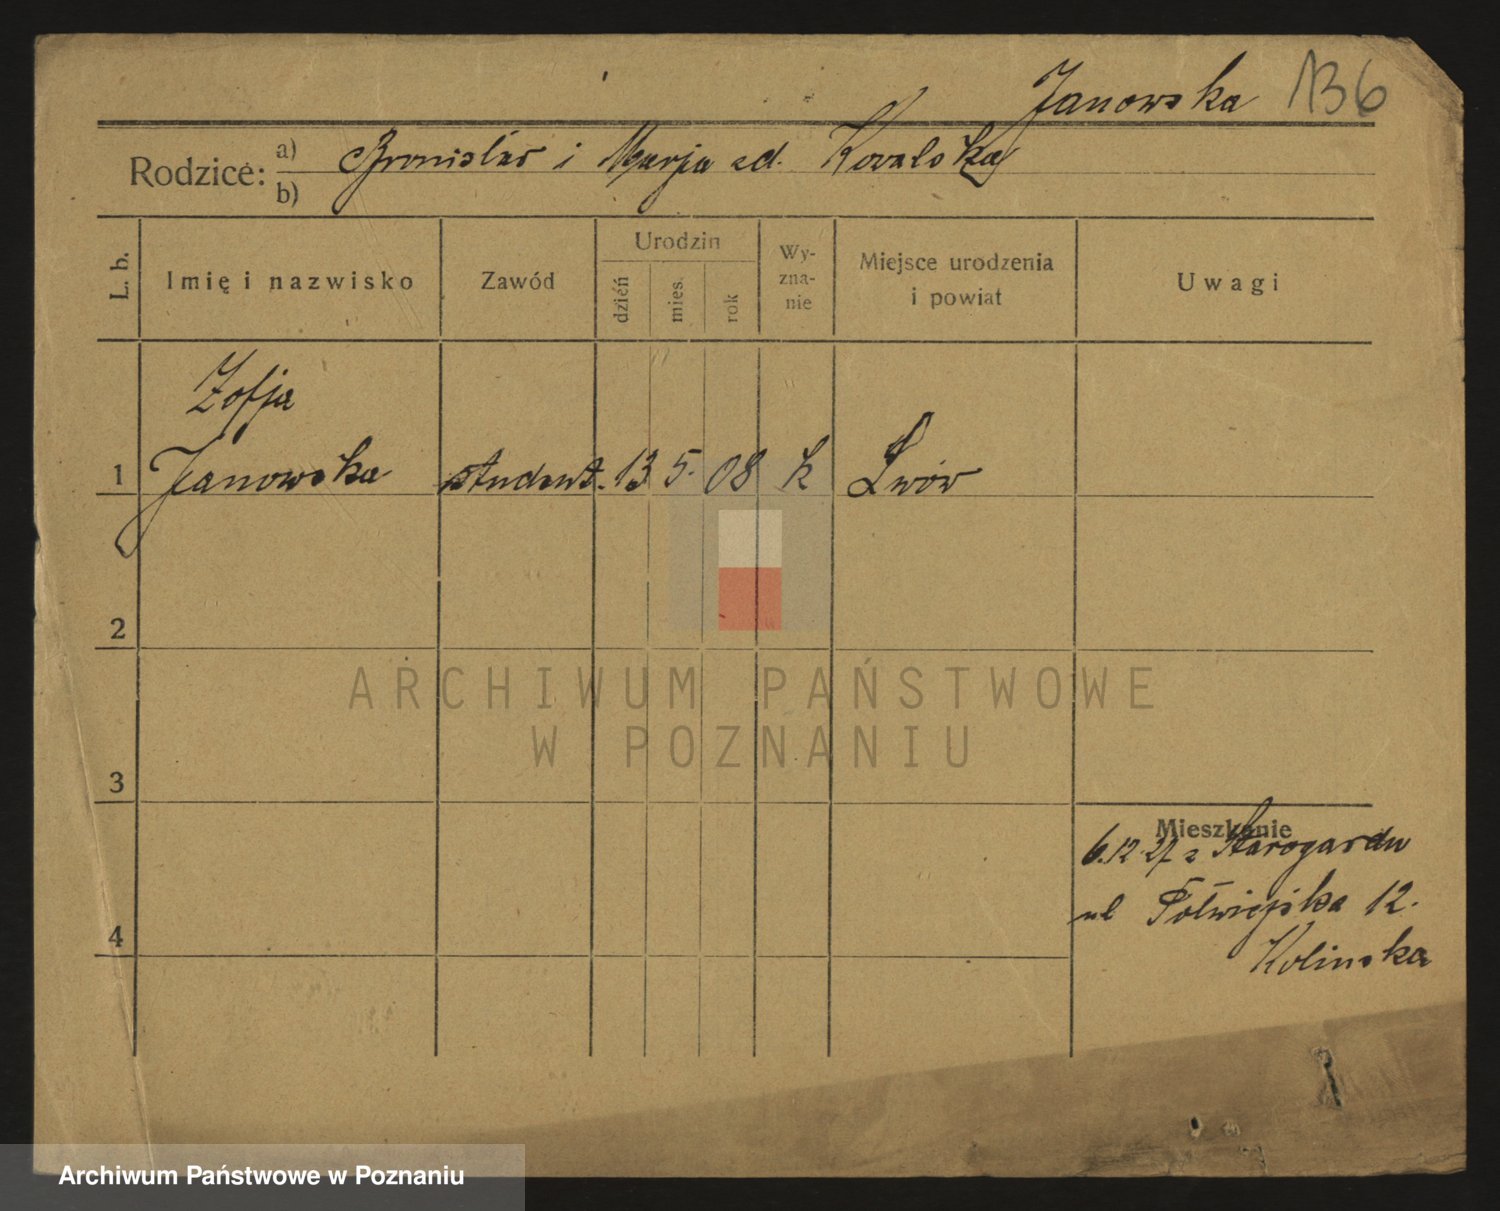 Janowska 136
Rodzice: a) Bronisław i Marja zd. Kowalska
b)
L. b. Imię i nazwisko Zawód Urodzin dzień mies. rok Wyznanie Miejsce urodzenia i powiat Uwagi
Zofja
1 Janowska student. 13 5. 08 k Lwów
2
ARCHIWUM PAŃSTWOWE
W POZNANIU
3
Mieszkanie
6.12.27 z Starogardu
ul Półwiejska 12.
4
Kolinska
Archiwum Państwowe w Poznaniu